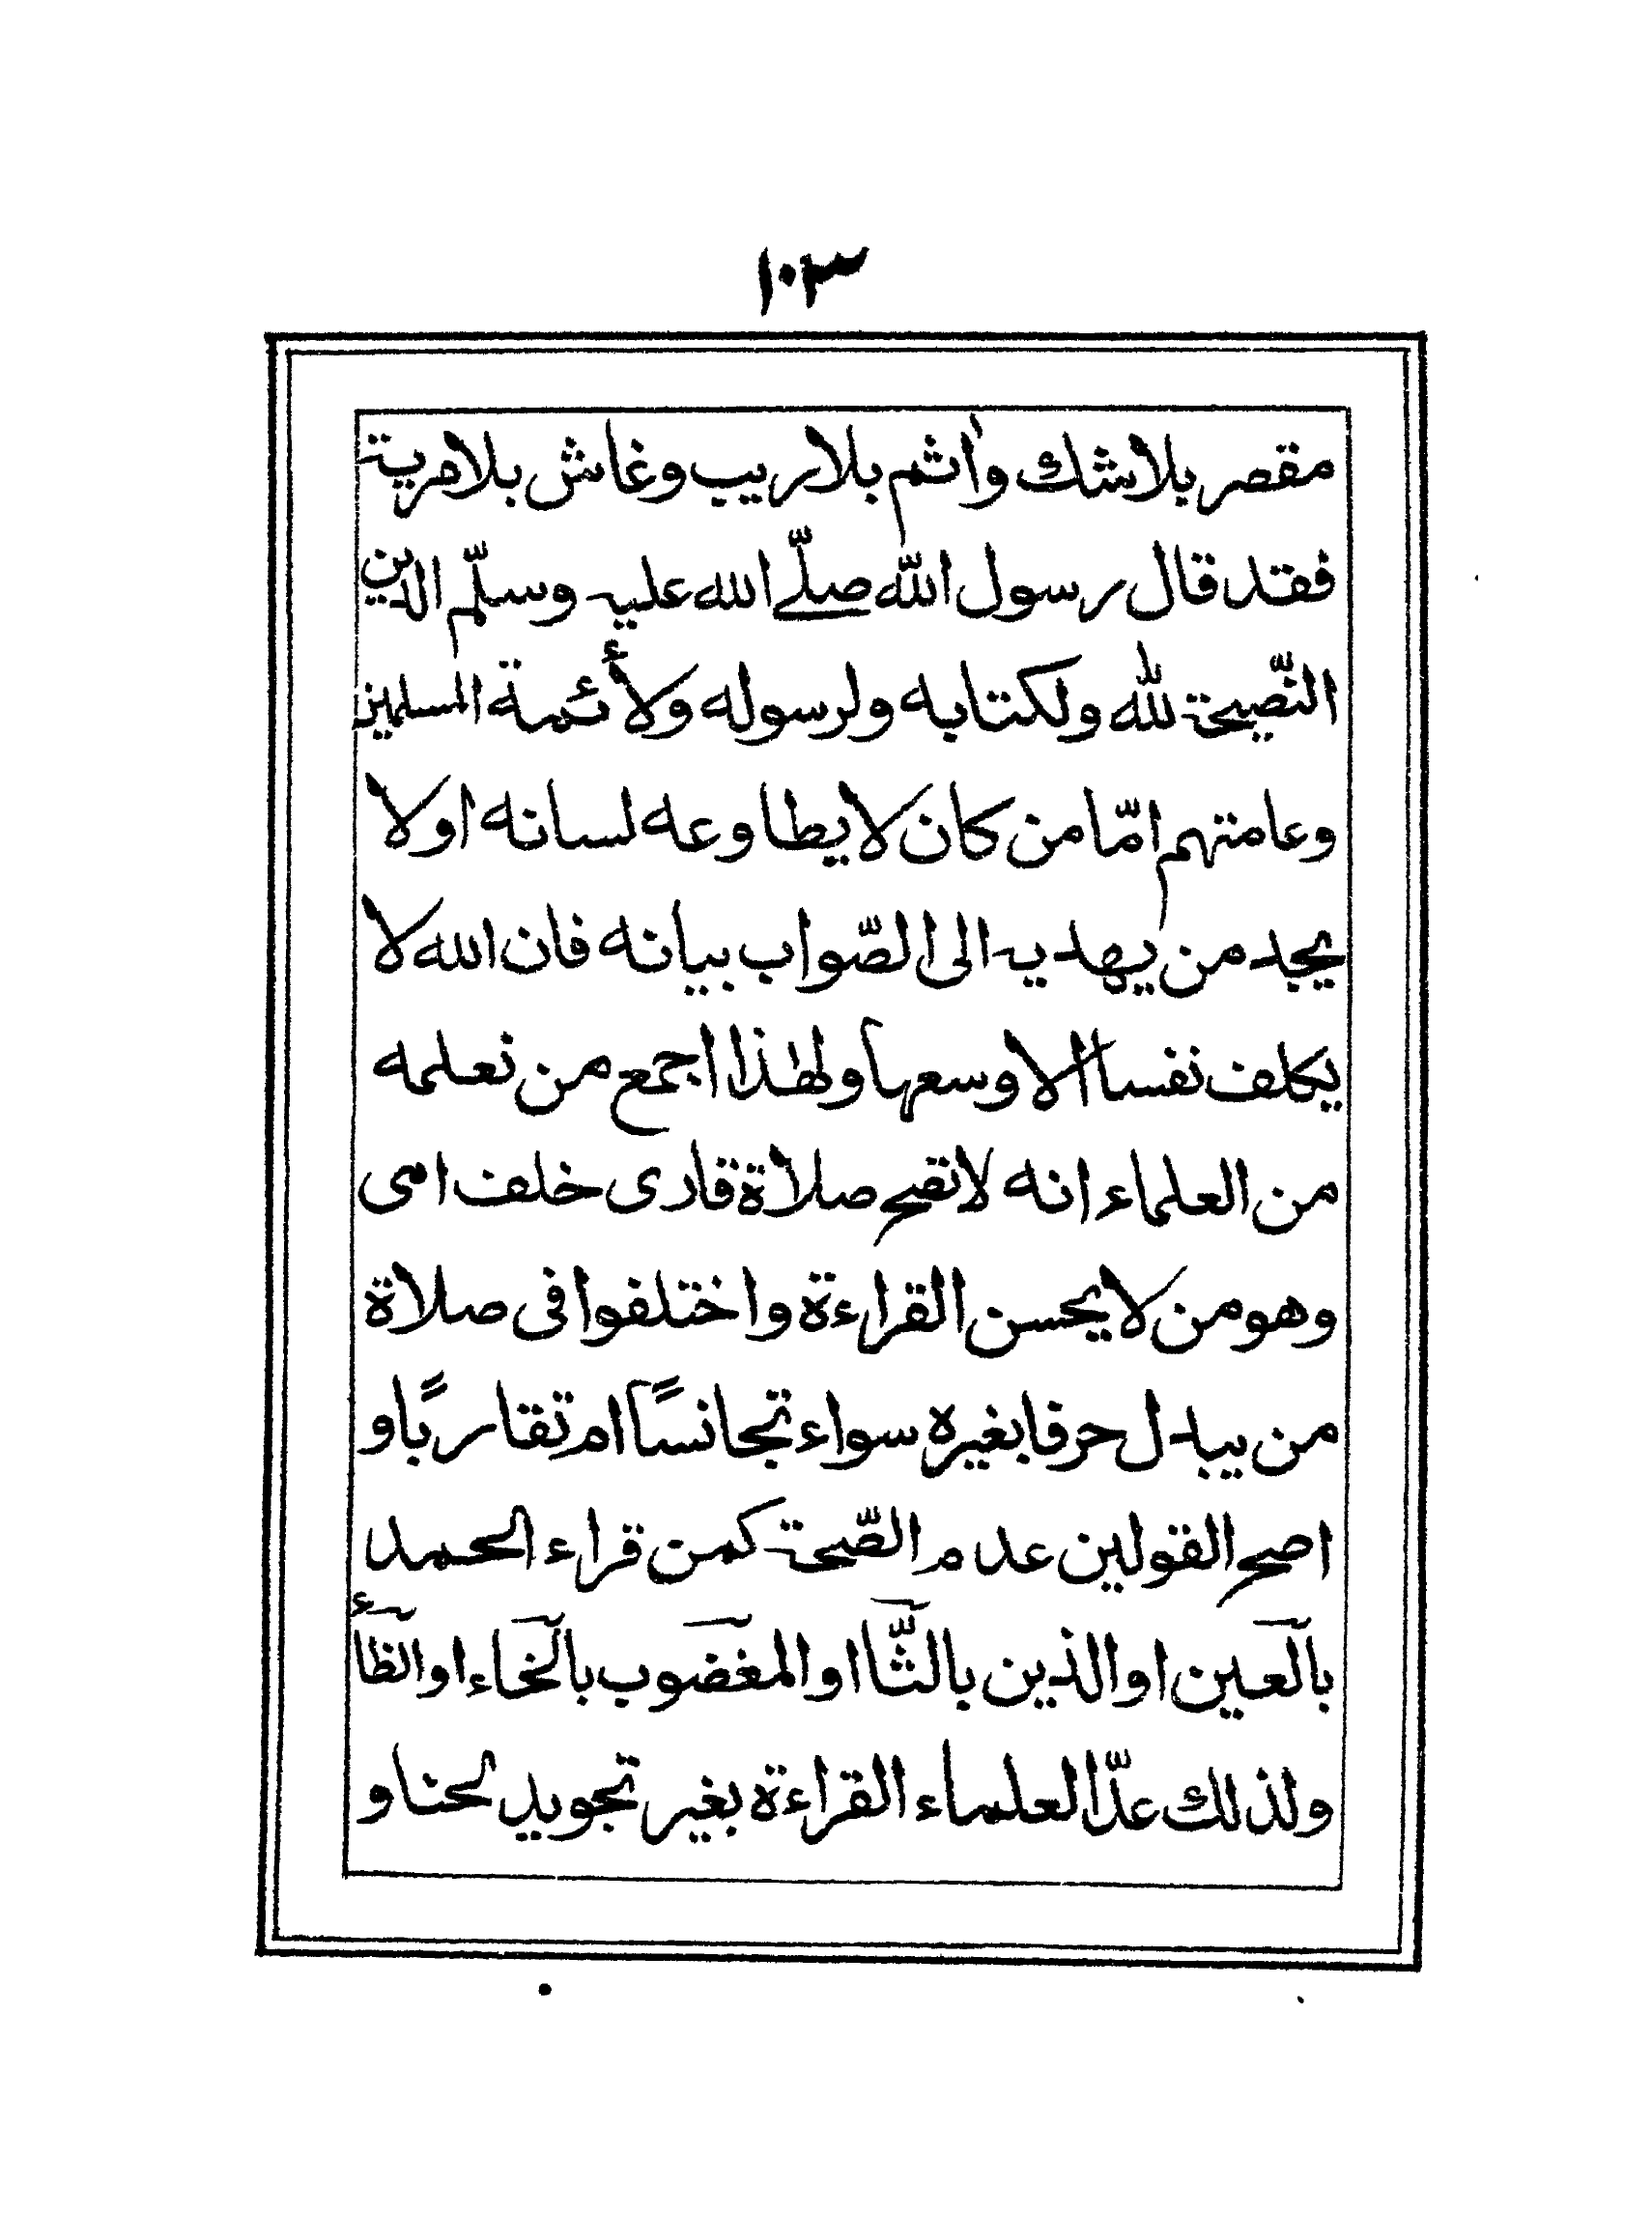 ١٠٣
مقصر بلاشك واٰثم بلاريب وغاش بلامرية
فقد قال رسول اللّٰه صلّے الله عليه وسلّم الدين
النّصيحة للّٰه ولكتابه ولرسوله ولأئمة المسلمين
وعامتهم امّا من كان لايطاوعه لسانه اولا
يجد من يهديه الى الصّواب بيانه فان الله لا
يكلف نفسا الا وسعها ولهٰذا اجمع من نعلمه
من العلماء انه لاتصح صلاة قارى خلف امى
وهو من لايحسن القراءة واختلفوا فى صلاة
من يبدل حرفا بغيره سواء تجانسًا ام تقاربًا و
اصح القولين عدم الصّحة كمن قراء الحمد
بالعين او الذين بالثّا او المغضوب بالخاء او الظاء
ولذلك عدّ العلماء القراءة بغير تجويد لحنا و